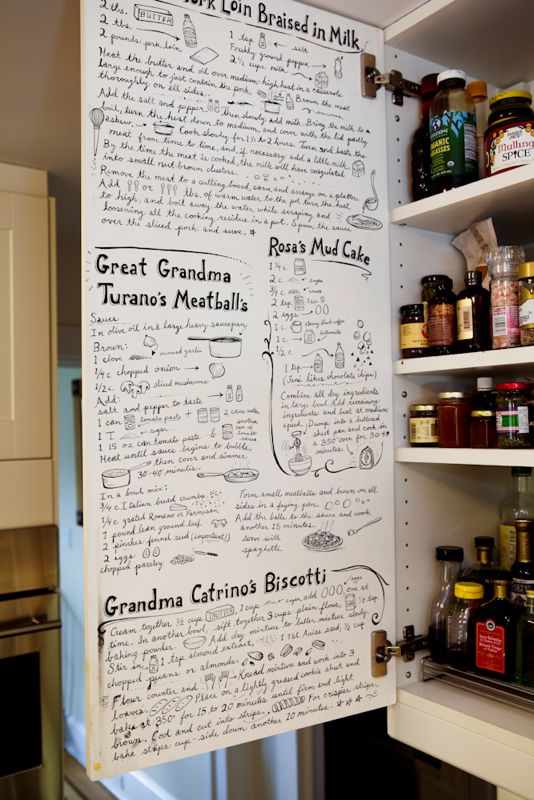 ork Loin Braised in Milk
2 tbs. BUTTER
2 tbs.
2 pounds pork loin
1 tsp salt
Freshly ground pepper
2 1/2 cups milk
Heat the butter and oil over medium-high heat in a casserole
large enough to just contain the pork. Brown the meat
thoroughly on all sides.
Add the salt and pepper, then slowly add milk. Bring the milk to a
boil, turn the heat down to medium, and cover with the lid partly
askew. Cook slowly for 1 1/2 to 2 hours. Turn and baste the
meat from time to time, and, if necessary, add a little milk.
By the time the meat is cooked, the milk will have coagulated
into small nut-brown clusters.
Remove the meat to a cutting board, carve, and arrange on a platter.
Add or tbs. of warm water to the pot, turn the heat
to high, and boil away the water while scraping and
loosening all the cooking residue in a pot. Spoon the sauce
over the sliced pork and serve.
Great Grandma
Turano's Meatball's
Sauce
In olive oil in a large heavy saucepan
Brown:
1 clove minced garlic
1/4 c. chopped onion
1/2 c. sliced mushrooms
Add:
salt and pepper to taste
1 can tomato paste + 2 cans water
1 T. sugar
1 15 oz can tomato paste & another can of sauce
Heat until sauce begins to bubble,
then cover and simmer
30-40 minutes.
In a bowl mix:
3/4 c. Italian bread crumbs
1/4 c. grated Romano or Parmesan
1 pound lean ground beef
2 pinches funnel seed (important!)
2 eggs
chopped parsley
Form small meatballs and brown on all
sides in a frying pan.
Add the balls to the sauce and cook
another 15 minutes.
Serve with
spaghetti.
Rosa's Mud Cake
1 3/4 c.
2 c. sugar
3/4 c. cocoa
2 tsp
2 eggs
1 c. strong black coffee
1 c. buttermilk
1/2 c.
1 tsp
(Jeni likes chocolate chips)
Combine all dry ingredients
in large bowl. Add remaining
ingredients and beat at medium
speed. Dump into a buttered
sheet pan and cook in
a 350° oven for 30-40
minutes.
Grandma Catrino's Biscotti
Cream together 1/2 cup BUTTER, 1 cup sugar, add eggs one at
time. In another bowl, sift together 3 cups plain flour, 1/2 tsp
baking powder. Add dry mixture to batter mixture slowly.
Stir in 1 tsp almond extract, 1 Tbl. Anise seed, 1/2 cup
chopped pecans or almonds. Knead mixture and work into 3
loaves. Flour counter and Place on a lightly greased cookie sheet and
bake at 350° for 15 to 20 minutes until firm and light
brown. Cool and cut into strips. For crispier strips,
bake strips cup-side down another 10 minutes.
ORGANIC
MOLASSES
Mulling
SPICE